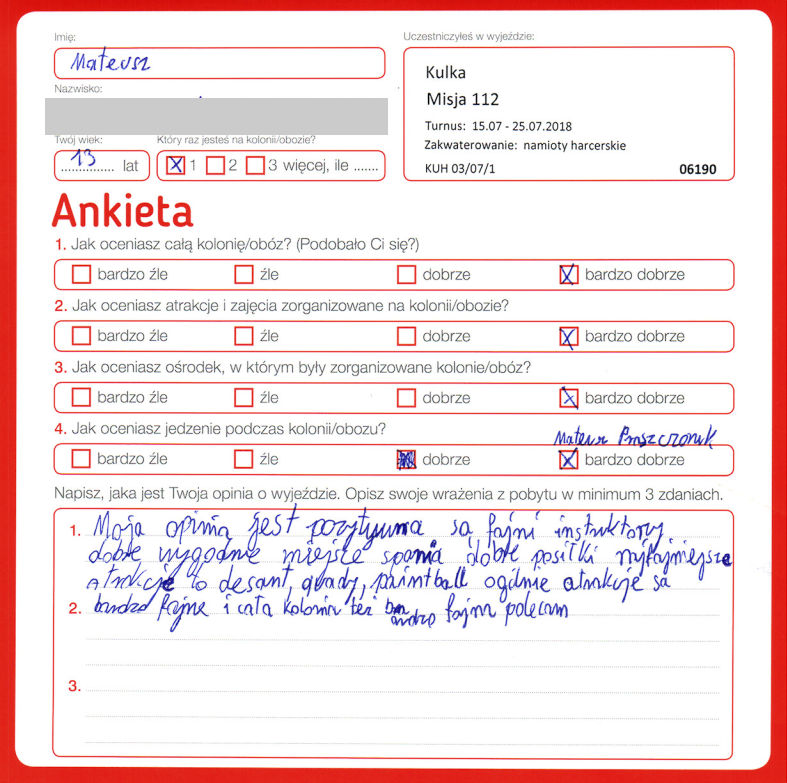 Imię:
Mateusz
Uczestniczyłeś w wyjeździe:
Kulka
Misja 112
Turnus: 15.07 - 25.07.2018
Zakwaterowanie: namioty harcerskie
KUH 03/07/1 06190
Nazwisko:
Twój wiek:
13 lat
Który raz jesteś na kolonii/obozie?
X 1 2 3 więcej, ile .......
Ankieta
1. Jak oceniasz całą kolonię/obóz? (Podobało Ci się?)
bardzo źle źle dobrze X bardzo dobrze
2. Jak oceniasz atrakcje i zajęcia zorganizowane na kolonii/obozie?
bardzo źle źle dobrze X bardzo dobrze
3. Jak oceniasz ośrodek, w którym były zorganizowane kolonie/obóz?
bardzo źle źle dobrze X bardzo dobrze
4. Jak oceniasz jedzenie podczas kolonii/obozu?
Mateusz
bardzo źle źle dobrze X bardzo dobrze
Napisz, jaka jest Twoja opinia o wyjeździe. Opisz swoje wrażenia z pobytu w minimum 3 zdaniach.
1. Moja opinia jest pozytywna są fajni instruktorzy
dobre wygodne miejsce spania dobre posiłki najfajniejsze
atrakcje to desant, quady, paintball ogólnie atrakcje sa
2. bardzo fajne i cała kolonia też bardzo fajna polecam
3.